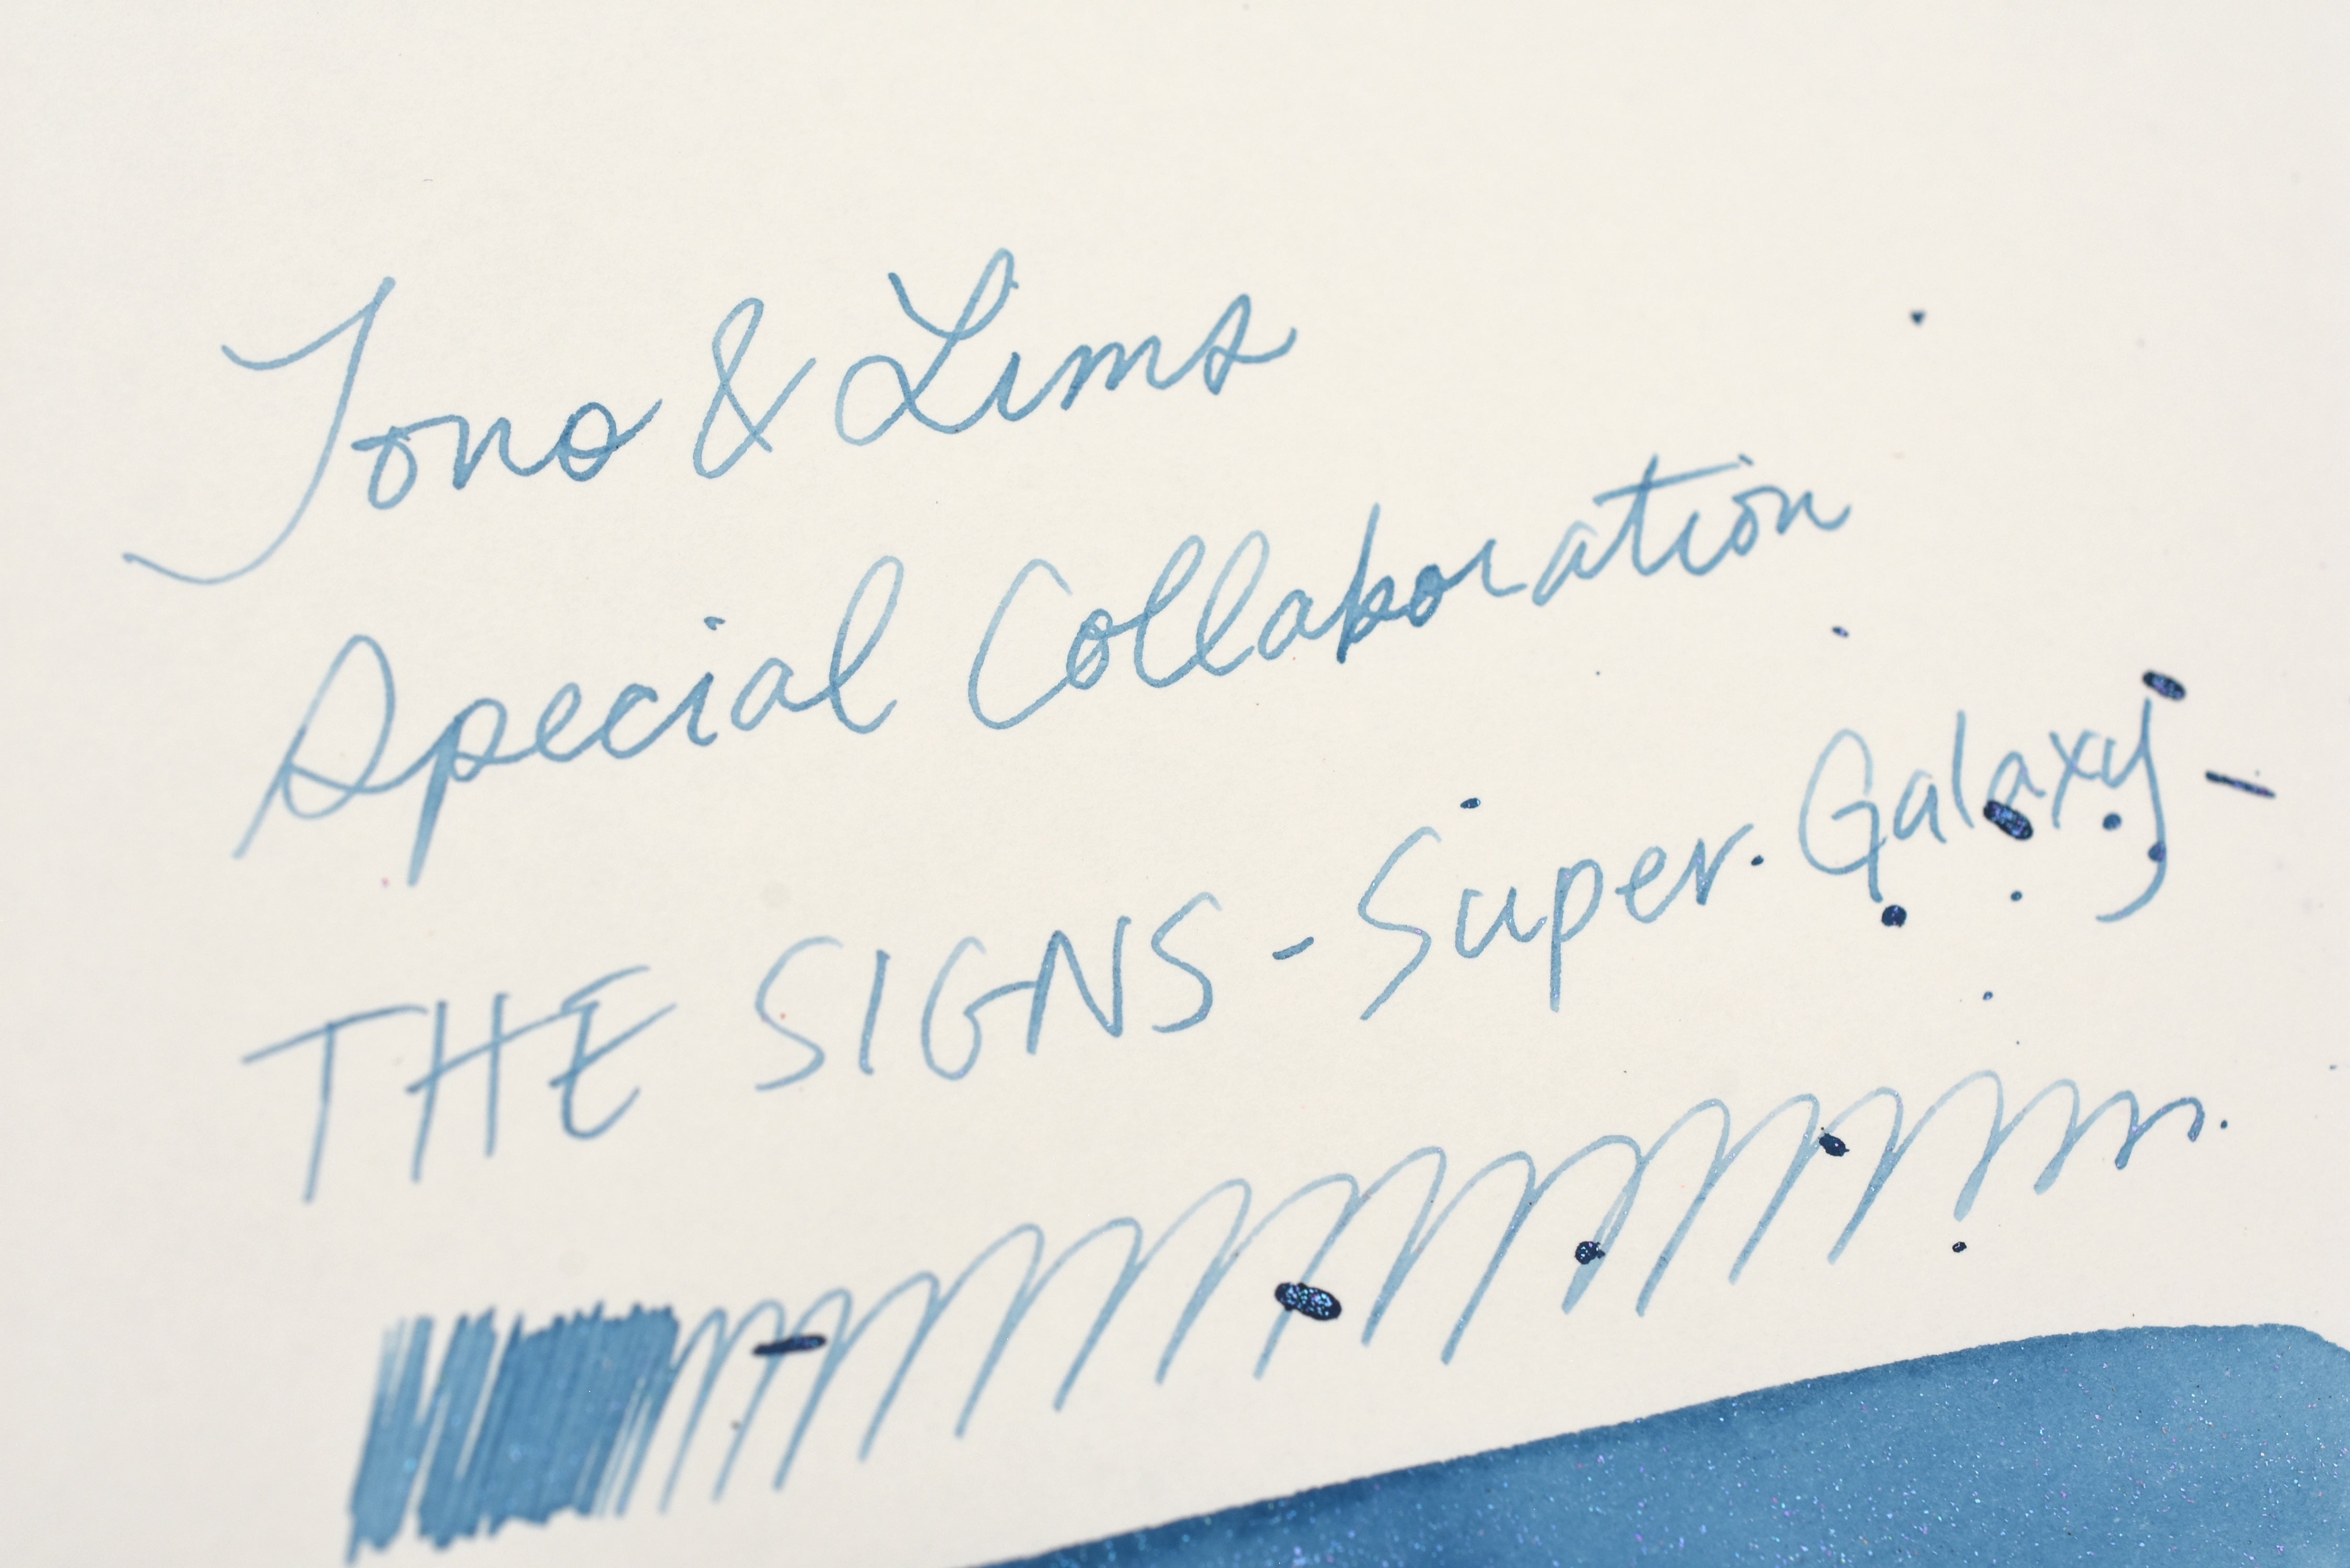 Tono & Lims
Special Collaboration
THE SIGNS - Super Galaxy -